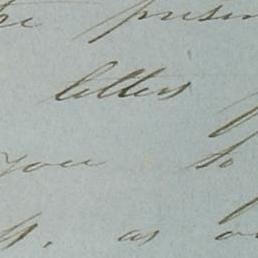 the presen
letters
you so
as